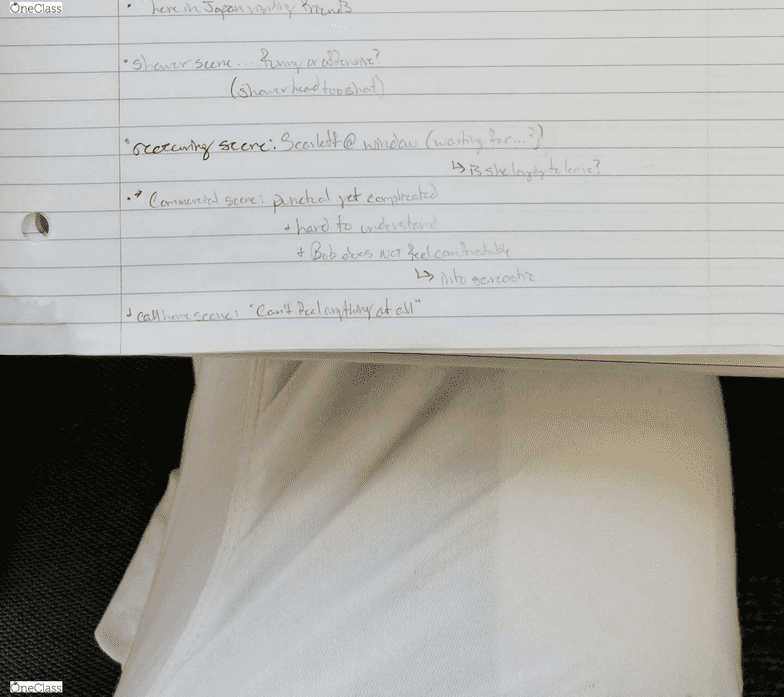 OneClass
• here in Japan visiting friends
• shower scene... funny or offensive?
(shower head too short)
• reoccuring scene: Scarlett @ window (waiting for...?)
↳ Is she laying to leave?
•→ Commercial scene: punctual yet complicated
+ hard to understand
+ Bob does NOT feel comfortable
↳ into sarcastic
+ call home scene: "Can't feel anything at all"
OneClass